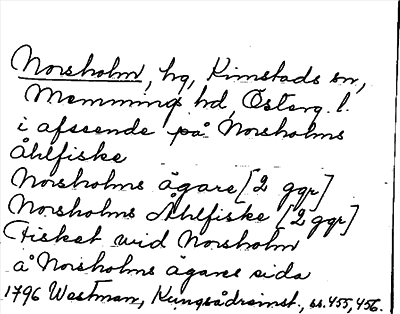 Norsholm, hg, Kimstads sn,
Memmings hd, Österg. l.
i afseende på Norsholms
Åhlfiske
Norsholms ägare [2 ggr]
Norsholms Åhlfiske [2 ggr]
Fisket wid Norsholm
å Norsholms ägare sida
1796 Westman, Kungsådreinst., ss. 455, 456.